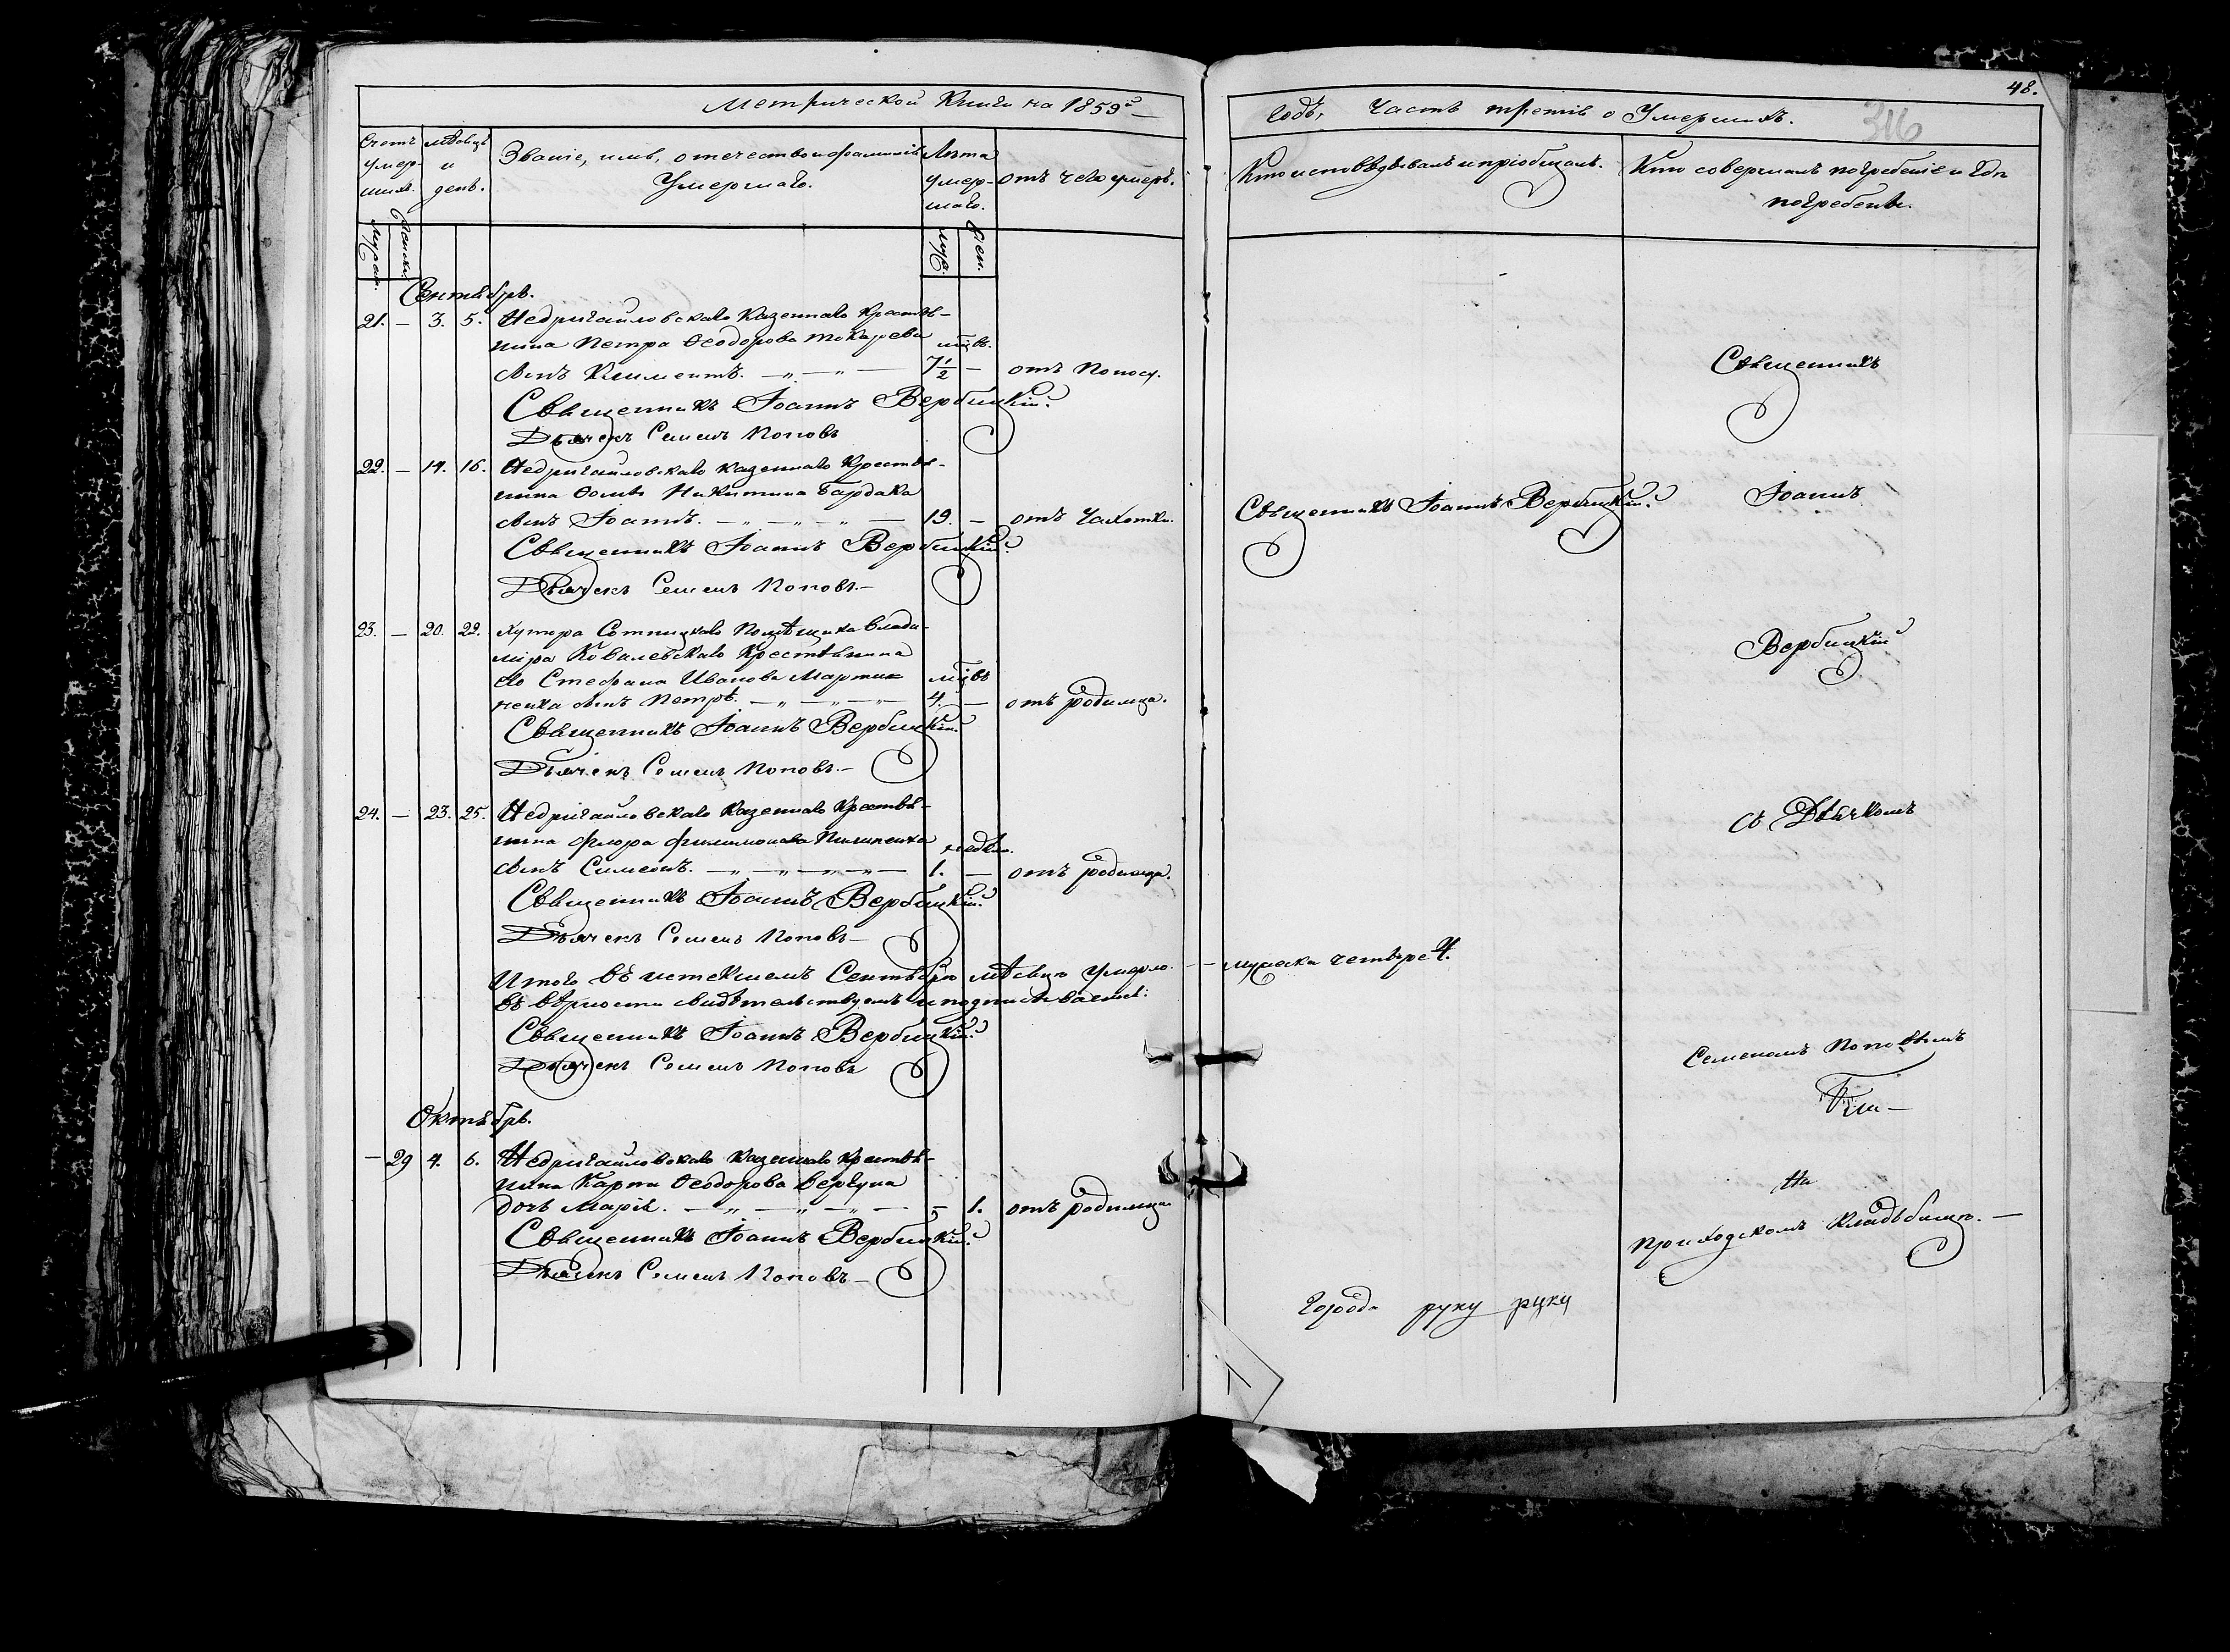 Метрической Книги на 1859й
Счетъ умер-шихъ.
Мѣсяцъ и день.
Званіе, имя, отечество и фамилія Умершаго.
Лѣта умер-шаго.
отъ чего умеръ.
Мужск.
Женски.
муж.
жен.
Сентябрь.
21. — 3. 5. Недригайловскаго Казеннаго Крестья-
нина Петра Ѳеодорова Токарева мцѣв.
сынъ Климентъ. 7 1/2 — отъ Понос.
Священникъ Іоаннъ Вербицкій.
Дьячекъ Семенъ Поповъ
22. — 14. 16. Недригайловскаго Казеннаго Крестья-
нина Ѳомы Никитина Бардака
сынъ Іоаннъ. 19. — отъ Чахотки.
Священникъ Іоаннъ Вербицкій.
Дьячекъ Семенъ Поповъ.—
23. — 20. 22. Хутора Сотницкаго Помѣщика Влади-
міра Ковалевскаго Крестьянина
его Стефана Иванова Мартин мцѣв
ненка сынъ Петръ. 4. — отъ родимца.
Священникъ Іоаннъ Вербицкій.
Дьячекъ Семенъ Поповъ.—
24. — 23. 25. Недригайловскаго Казеннаго Крестья-
нина Флора Филимонова Пилипенка недѣл.
сынъ Симеонъ. 1. — отъ родимца.
Священникъ Іоаннъ Вербицкій.
Дьячекъ Семенъ Поповъ—
Итого въ истекшемъ Сентябрѣ мѣсяцѣ умерло.
въ вѣрности свидѣтельствуемъ и подписываемся:
Священникъ Іоаннъ Вербицкій.
Дьячекъ Семенъ Поповъ
Октябрь.
— 29 4. 6. Недригайловскаго Казеннаго Крестья-
нина Карпа Ѳеодорова Вергуна
дочь Марія. — 1. отъ родимца
Священникъ Іоаннъ Вербицкій.
Дьячекъ Семенъ Поповъ—
48.
316
Годъ, Часть третія о Умершихъ.
Кто исповѣдывалъ и пріобщалъ.
Кто совершалъ погребеніе и гдѣ
погребены.
Священникъ
Священникъ Іоаннъ Вербицкій.
Іоаннъ
Вербицкій
съ Дьячкомъ
мужеска четыре 4.
Семеномъ Поповымъ
На
приходскомъ Кладбищѣ.—
Города руку руку